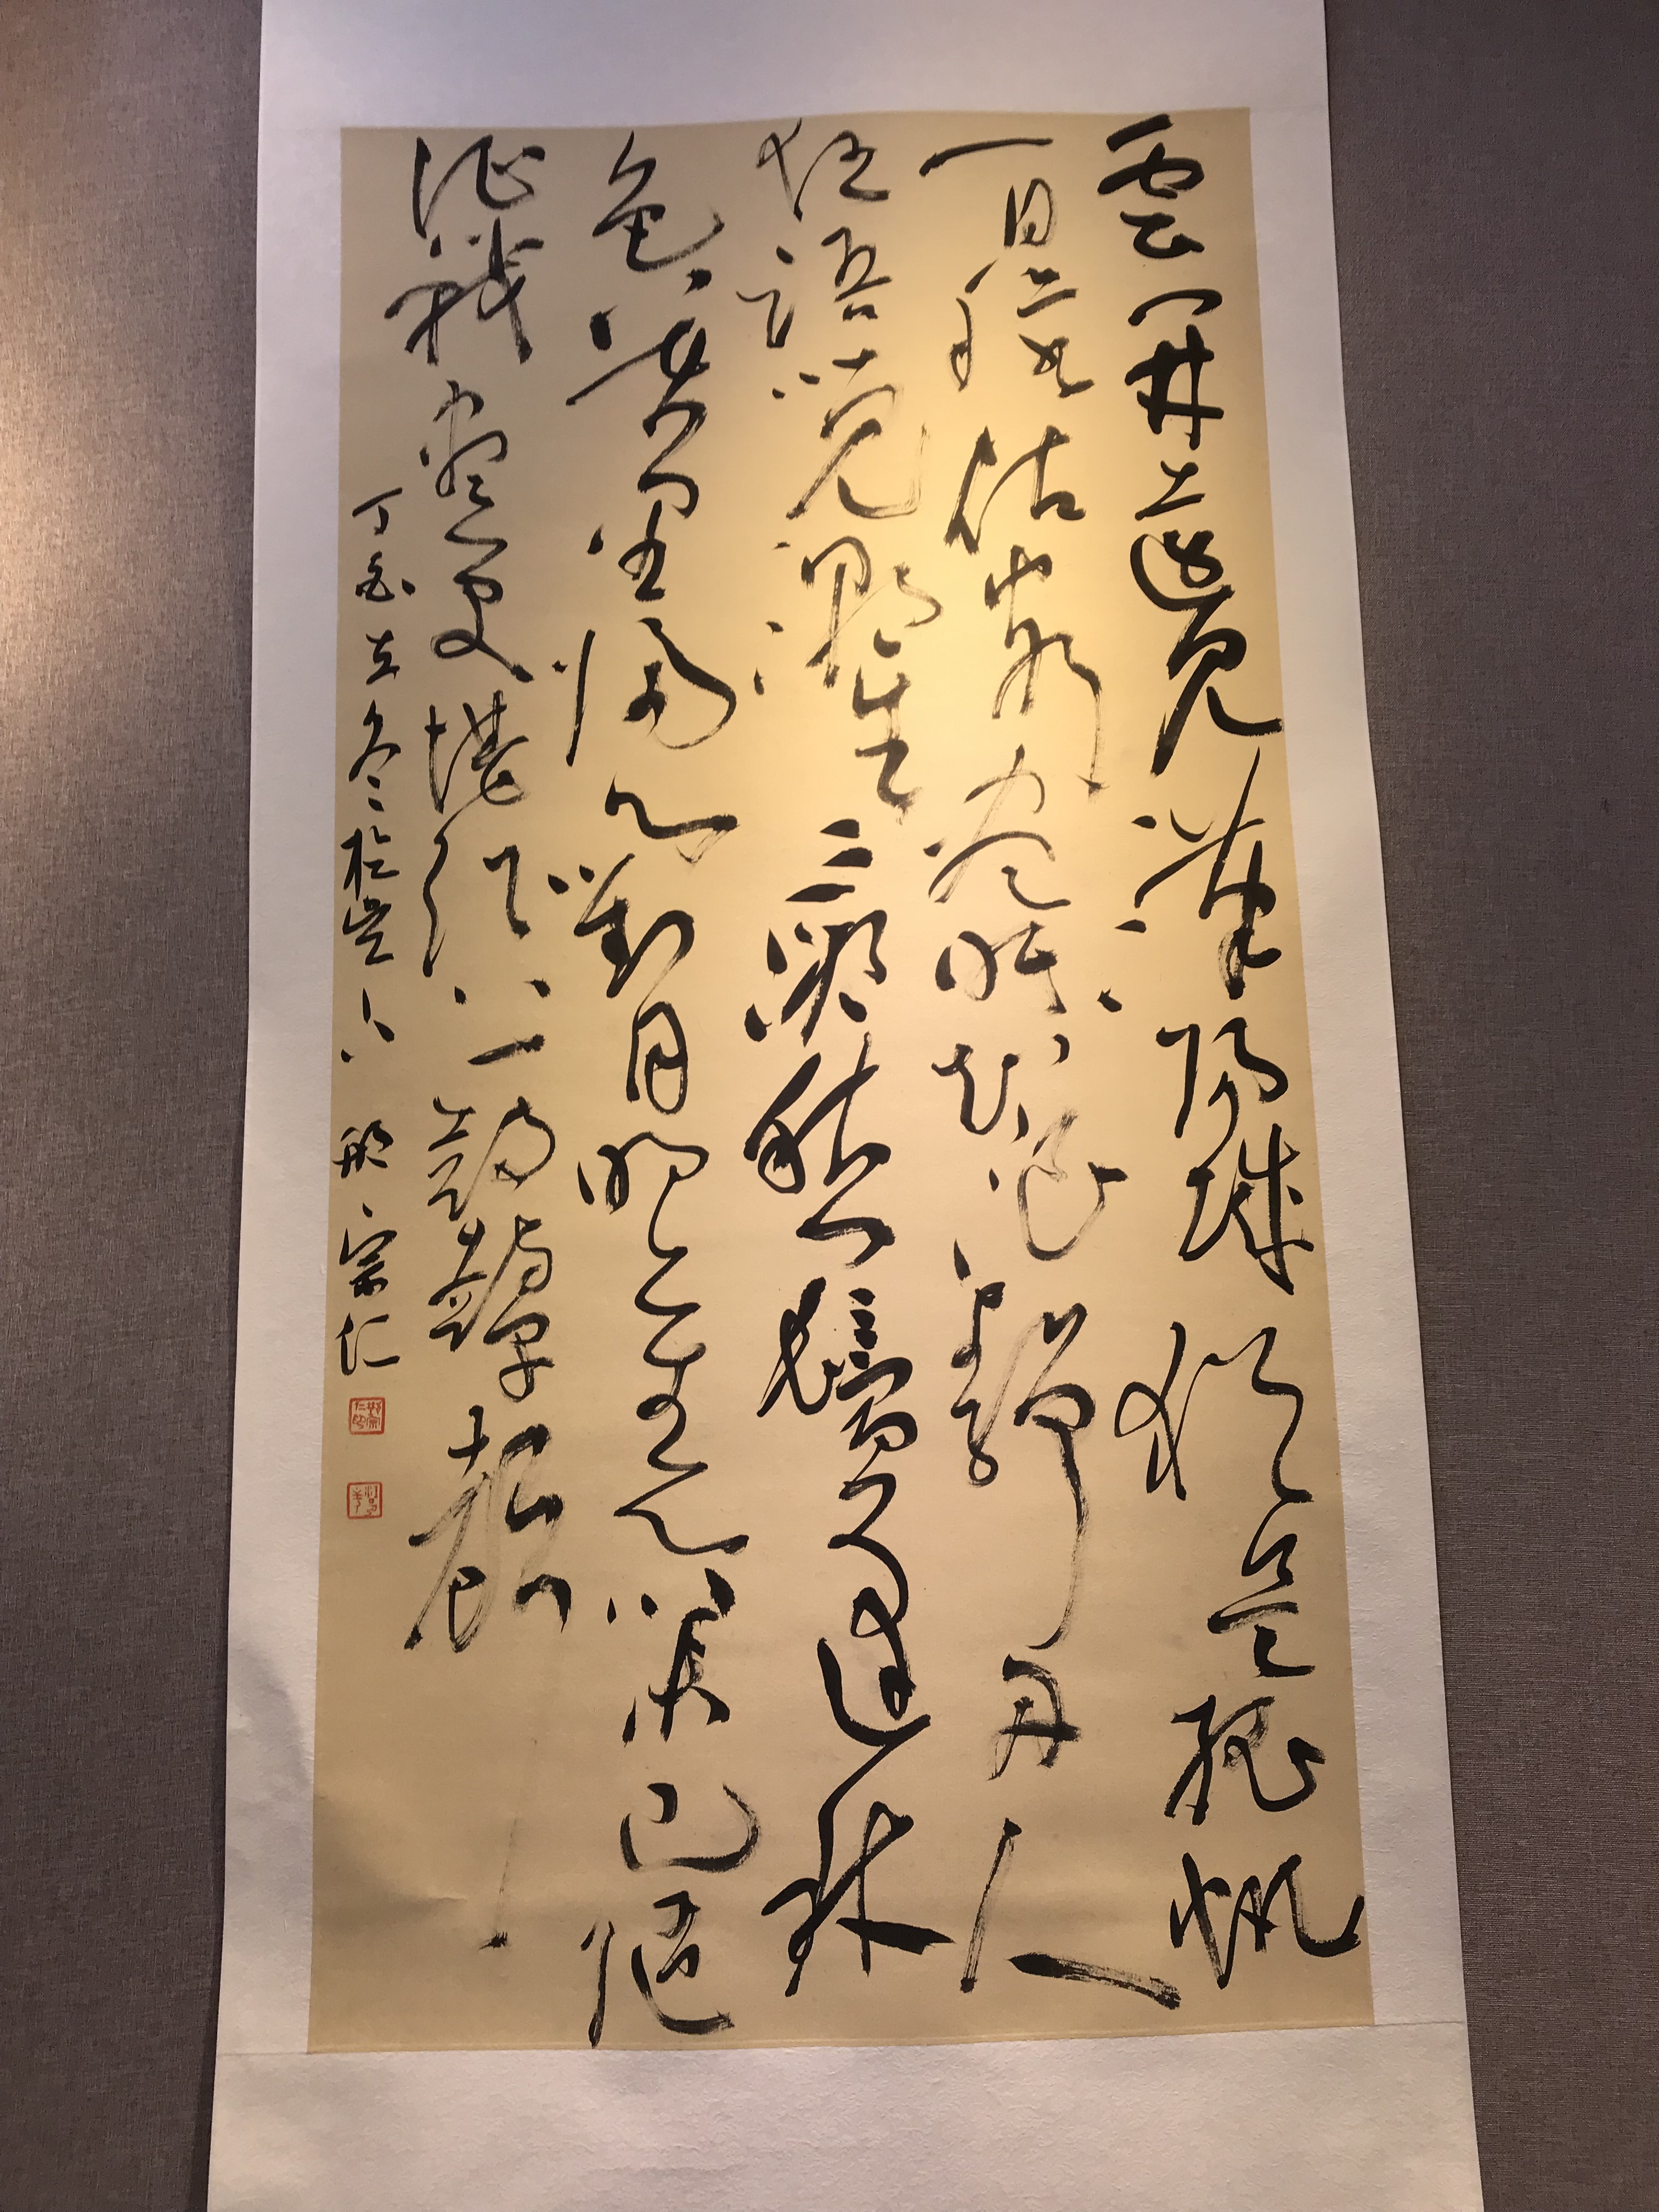 雲開遠見漢陽城猶是孤帆
一日程估客晝眠知浪靜舟人
夜語覺潮生三湘愁鬢逢秋
色萬里歸心對月明舊業已隨
征戰盡更堪江上鼓鼙聲
丁酉立冬於 邢宗仁